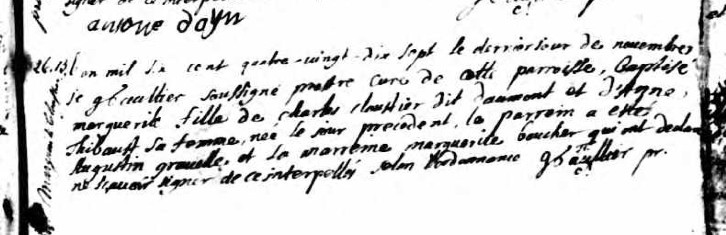 antoine dayn
Lan mil six cent quatre-vingt-dix sept le dernier jour de novembre
Je ghaultier soussigné prestre curé de cette parroisse, Baptisé
marguerite fille de charles cloustier dit daumont et d'Agne,
Thibault sa femme, née le jour precedent, le parrein a esté
Augustin gravelle, et la marreine marguerite boucher qui ont declaré
ne sçavoir signer de ce interpellés selon l'ordonnance ghaultier pr.